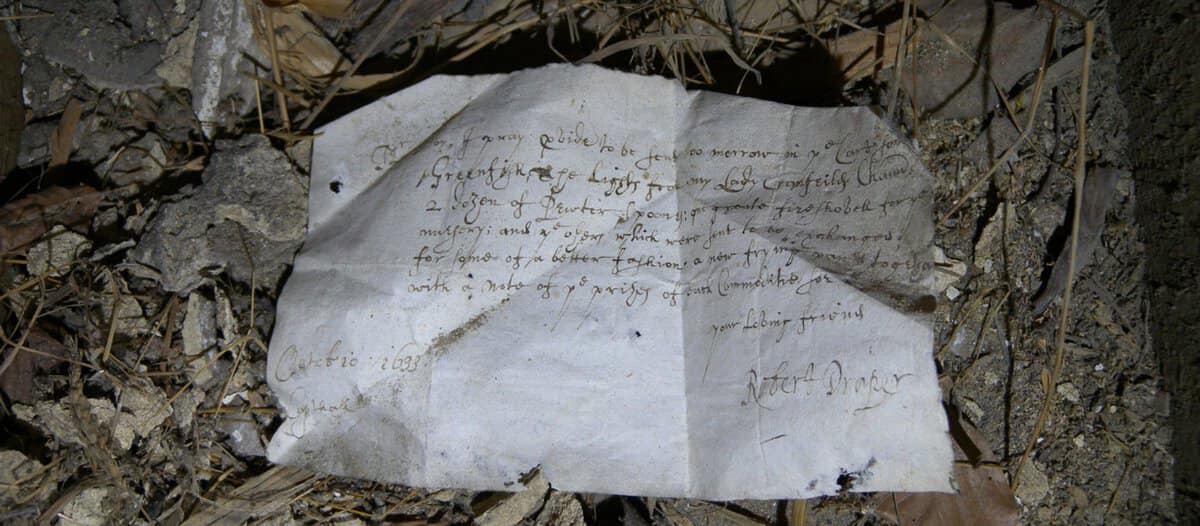 Mr I pray pvide to be sent too morrow in ye Cart some
Greenfish, ye Lights from my Lady Cranfeilds Cham
2 dozen of Pewter spoons: greate fireshovell for ye
nursery; and ye oyers which were sent to be exchanged
for some of a better fashion, a new frying togeth
with a note of ye prises of such Commoditie for
your loving friend
Robert Draper
Octobre 1633
Copthall